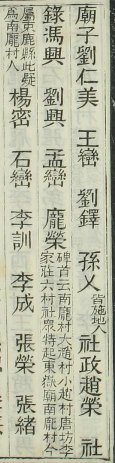 廟子劉仁美 王巒 劉鐸 孫乂皆施地人 社政趙榮 社
錄馮興 劉興 孟巒 龐榮碑首云南龐村大趙村小趙村唐坊李家莊六村社衆特起東嶽廟南龐村今
屬束鹿縣此疑爲南龐村人 楊密 石巒 李訓 李成 張榮 張緒